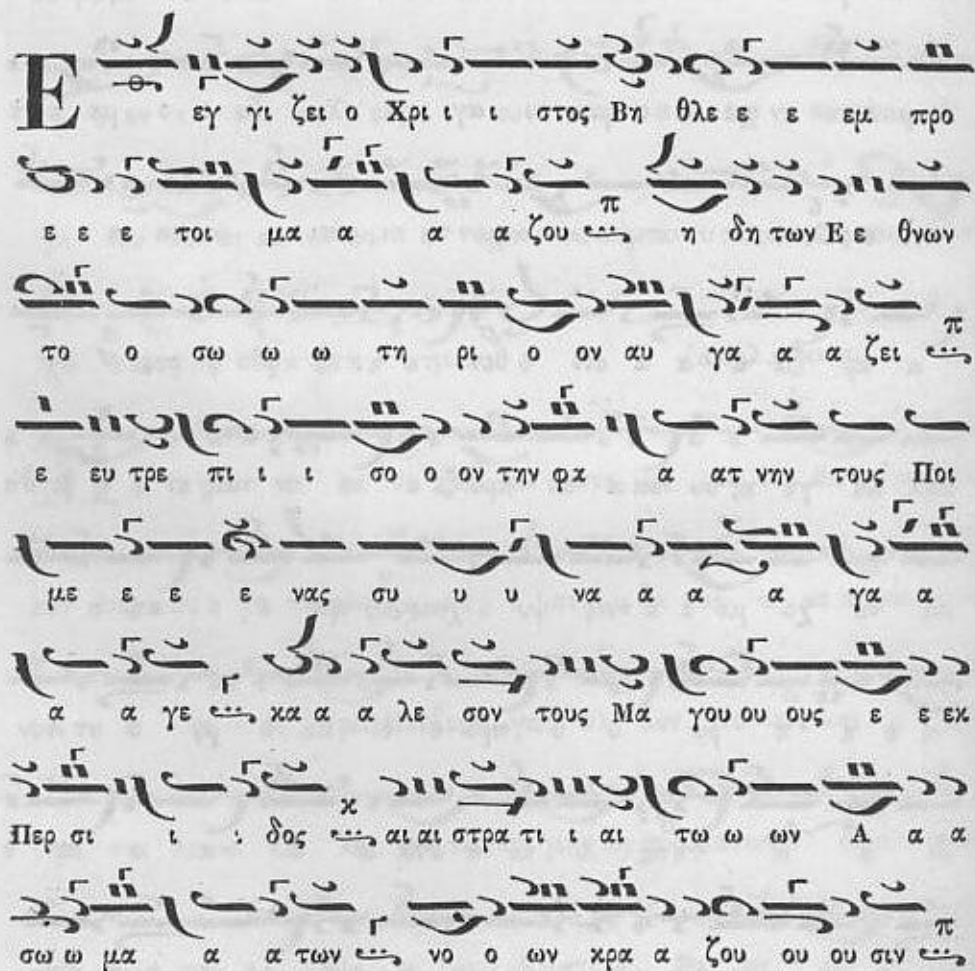 Ε εγ γι ζει ο Χρι ι ι στος Βη θλε ε ε εμ προ
ε ε ε τοι μα α α α ζου π η δη των Ε ε θνων
το ο σω ω ω τη ρι ο ον αυ γα α α ζει π
ε ευ τρε πι ι ι σο ο ον την φα α ατ νην τους Ποι
με ε ε ε νας συ υ υ να α α α γα α
α α γε Γ κα α α λε σον τους Μα γου ου ους ε ε εκ
Περ σι ι ι δος κ αι αι στρα τι ι αι τω ω ων Α α α
σω ω μα α α των Γ νο ο ων κρα α ζου ου ου σιν π